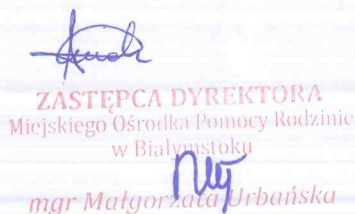 ZASTĘPCA DYREKTORA
Miejskiego Ośrodka Pomocy Rodzinie
w Białymstoku
mgr Małgorzata Urbańska